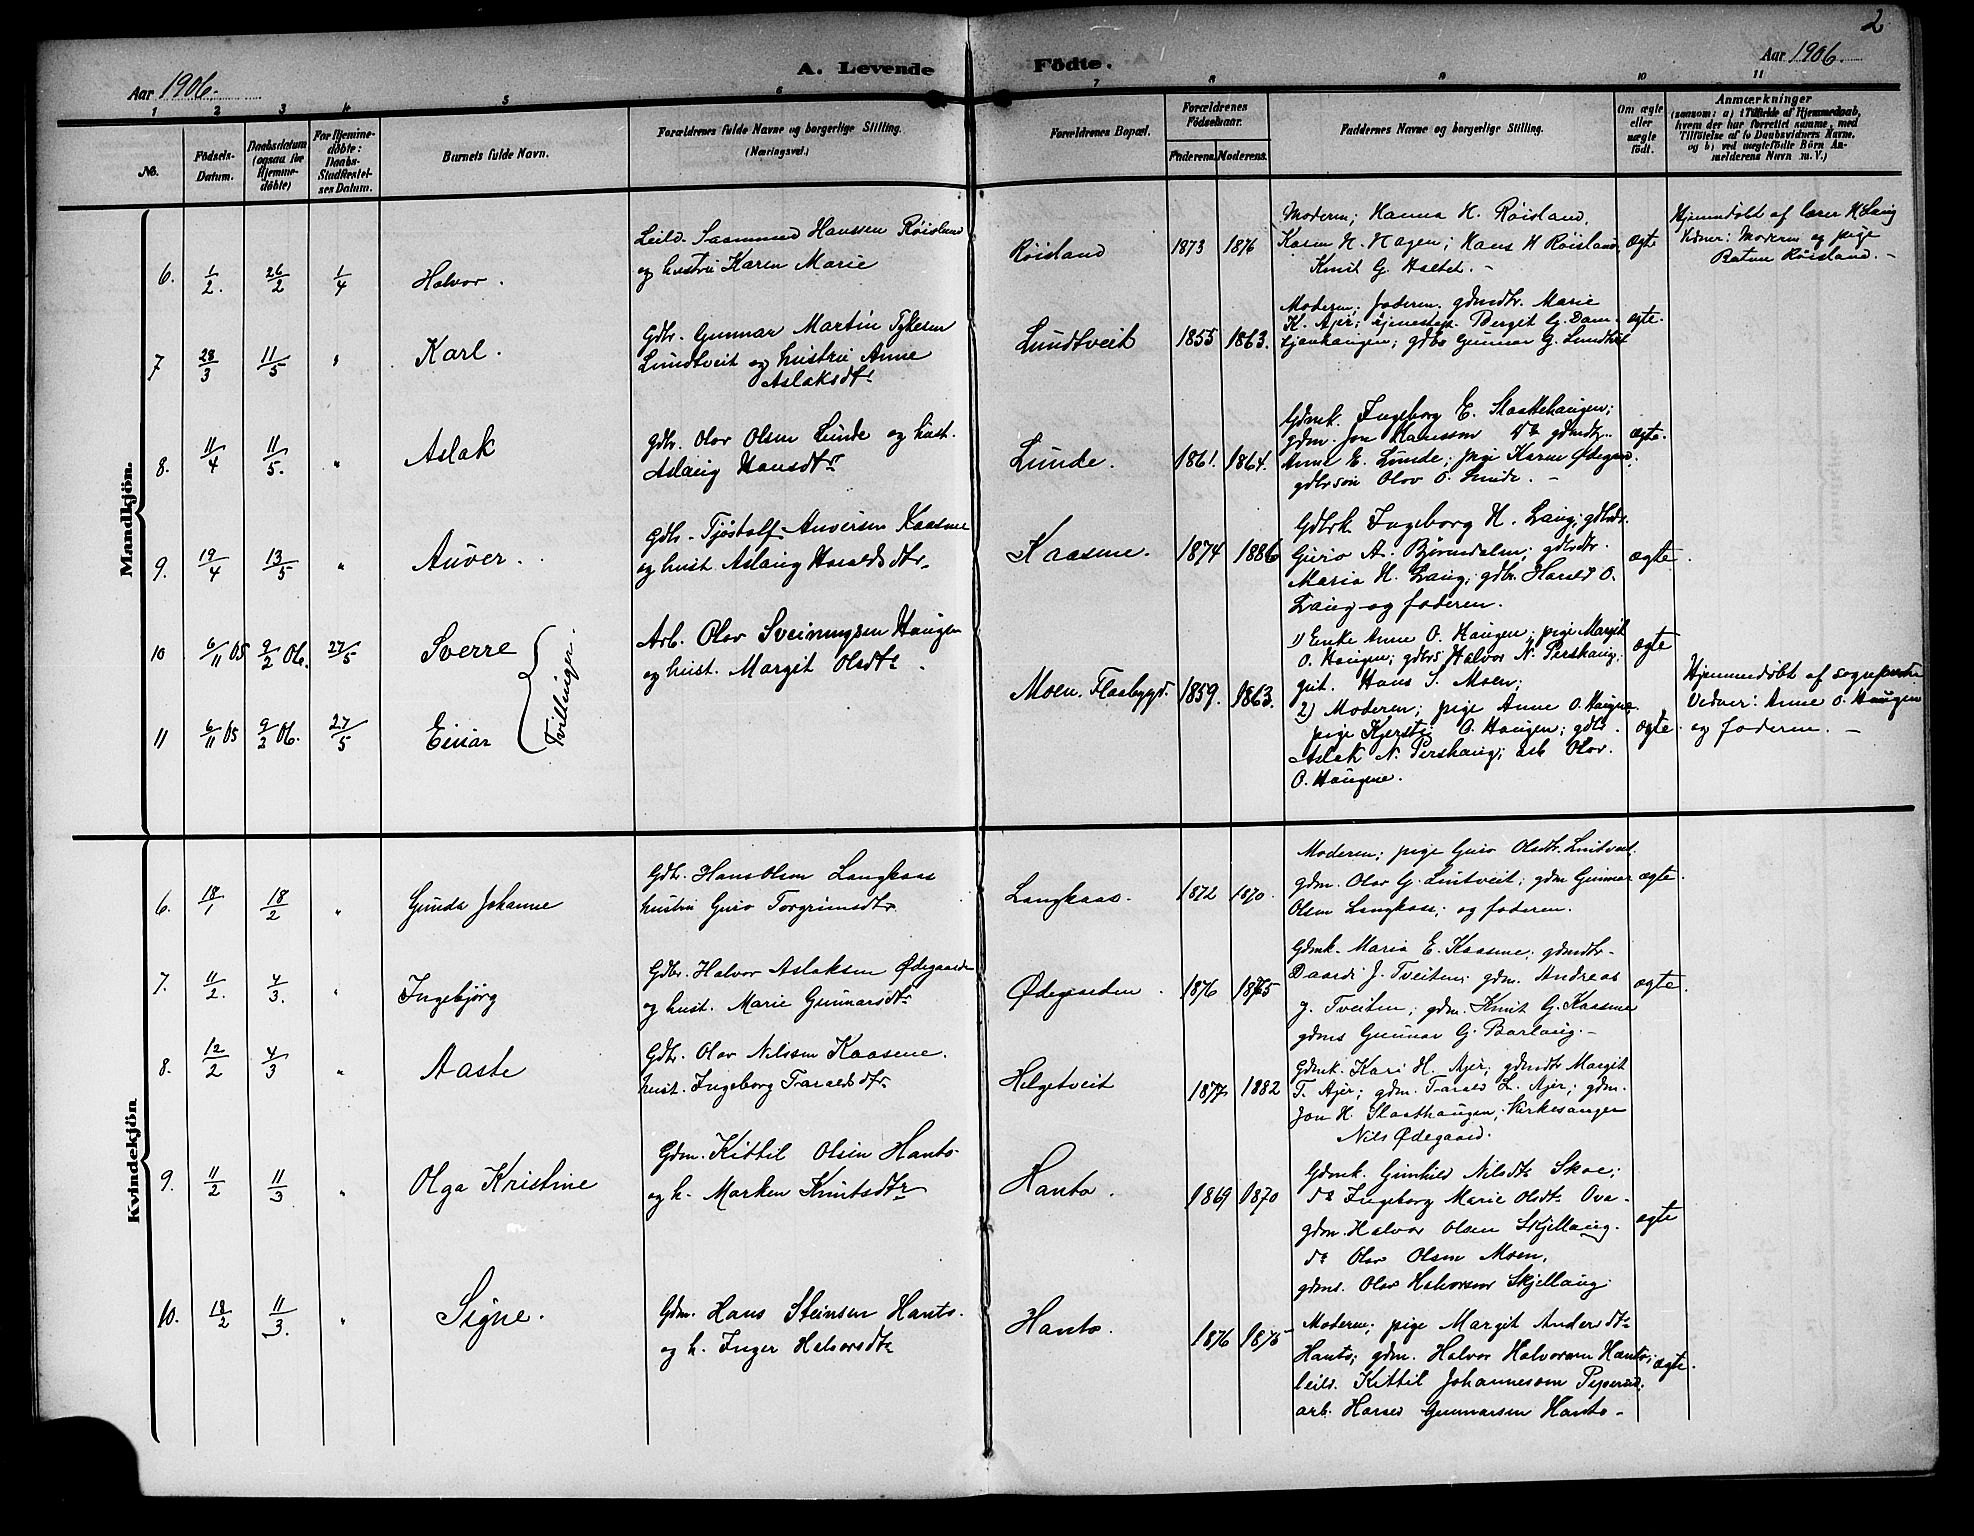 2
Aar 1906.
A. Levende
Födte.
Aar 1906.
1 2 3 4 5 6 7 8 9 10 11
No.
Födsels-
Datum.
Daabsdatum
(ogsaa for
Hjemme-
döbte)
For Hjemme-
döbte:
Daabs-
Stadfæstel-
ses Datum.
Barnets fulde Navn.
Forældrenes fulde Navne og borgerlige Stilling.
(Næringsvei.)
Forældrenes Bopæl.
Forældrenes
Födselsaar.
Faderens. Moderens.
Faddernes Navne og borgerlige Stilling.
Om ægte
eller
uægte
födt.
Anmærkninger
(saasom: a) i Tilfælde af Hjemmedaab,
hvem der har forrettet samme, med
Tilföielse af to Daabsvidners Navne,
og b) ved uægtefödte Börn An-
melderens Navn m. V.)
Mandkjön.
6. 1/2. 26/2 1/4 Halvor.
Leild. Saamund Hanssen Røisland
og hustru Karen Marie
Røisland 1873 1876
Moderen; Hanna H. Røisland,
Karen N. Hagen; Hans H Røisland,
Knut G. Haltet. -
ægte
Hjemmdøbt af lærer H Laug
Vidner: Moderen og pige
Røisland. -
7 28/3 11/5 " Karl.
Gdbr. Gunnar Martin Tykesen
Lundtveit og hustru Anne
Aslaksdtr
Lundtveit 1855 1863.
Moderen; faderen; gdmdtr. Marie
K. Ajer; tjenestep. Bergit G. Dam-
tjønhaugen; gdbs Gunnar G. Lundtveit
ægte.
8. 11/4 11/5. " Aslak
Gdbr. Olav Olsen Lunde og hust.
Aslaug Hansdtr
Lunde. 1861. 1864.
Gdmk. Ingeborg E. Slaattehaugen;
gdm. Jon Hanssen do gdmdtr.
Anne E. Lunde; pige Karen Ødegaard;
gdbrsøn Olav O. Lunde. -
ægte.
9. 19/4 13/5 " Auver.
Gdbr. Tjøstolf Auversen Kaasene
og hust. Aslaug Haraldsdtr.
Kaasene. 1874 1886
Gdbrk. Ingeborg H. Laug; gdbrdr.
Guro A. Bjørndalen; gdbrdtr.
Maria H. Laug; gdbr. Harald O.
Laug og faderen.
ægte.
10 6/11 05 9/2 06. 27/5 Sverre
Tvillinger.
Arb. Olav Sveinungsen Haugen
og hust. Margit Olsdtr.
Moen. Flaabygd. 1859. 1863.
1) Enke Anne O. Haugen; pige Margit
O. Haugen; gdbrs Halvor N. Pershaug;
gut. Hans S. Moen;
ægte
11 6/11 05 9/2 06. 27/5 Einar
2) Moderen; pige Anne O. Haugene,
pige Kjersti O. Haugen; gdbr.
Aslak N. Pershaug; arb Olav.
O. Haugene.
ægte.
Hjemmedøbt af sogneprest
Vidner: Anne O. Haugen
og faderen. -
Kvindekjön
6. 18/1 18/2 " Gunda Johanne
Gdbr. Hans Olsen Langkaas
hustru Guro Torgrimsdtr.
Langkaas. 1872 1870.
Moderen; pige Guro Olsdtr. Lintveit;
gdm. Olav G. Lintveit; gdm Gunnar
Olsen Langkaas; og faderen.
ægte.
7. 11/2. 4/3. " Ingebjørg
Gdbr. Halvor Aslaksen Ødegaarden
og hust. Marie Gunnarsdtr
Ødegaarden. 1876 1865
Gdmk. Maria E. Kaasene; gdmdtr.
J. Tveiten; gdm. Andreas
J. Tveiten; gdm. Knut G. Kaasene
gdms Gunnar G. Barlaug. -
ægte.
8. 12/2 4/3 " Aaste
Gdbr. Olav Nilssen Kaasene.
hust. Ingeborg Taraldsdtr.
Helgetveit 1877 1882
Gdmk. Kari H. Ajer; gdmdtr Margit
T. Ajer; gdm. Tarald L. Ajer; gdm.
Jon H. Slaatthaugen; Kirkesanger
Nils Ødegaard.
9. 11/2 11/3 " Olga Kristine
Gdm. Kittil Olsen Hanto
og h. Marken Knutsdtr
Hanto. 1869 1870
Gdmk. Gunhild Nilsdtr Skoe;
do Ingeborg Marie Olsdtr Ova-
gdm. Halvor Olsen Skjellaug.
do Olav Olsen Moen,
gdms. Olav Halvorsen Skjellaug.
ægte
10. 18/2 11/3. " Signe.
Gdm. Hans Steinsen Hanto.
og h. Inger Halvorsdtr
Hanto. 1876 1875
Moderen; pige Margit Andersdtr
Hanto; gdm. Halvor Halvorsen Hanto;
leild. Kittil Johannessen
arb. Gunnarsen Hanto-
ægte.